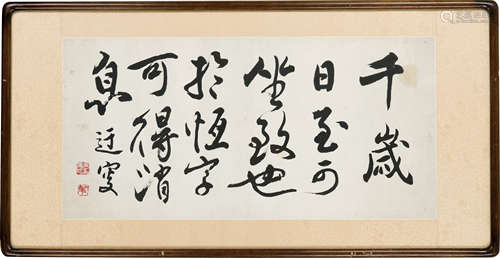 千歲
日至可
坐致也
於恆字
可得消
息
迂叟